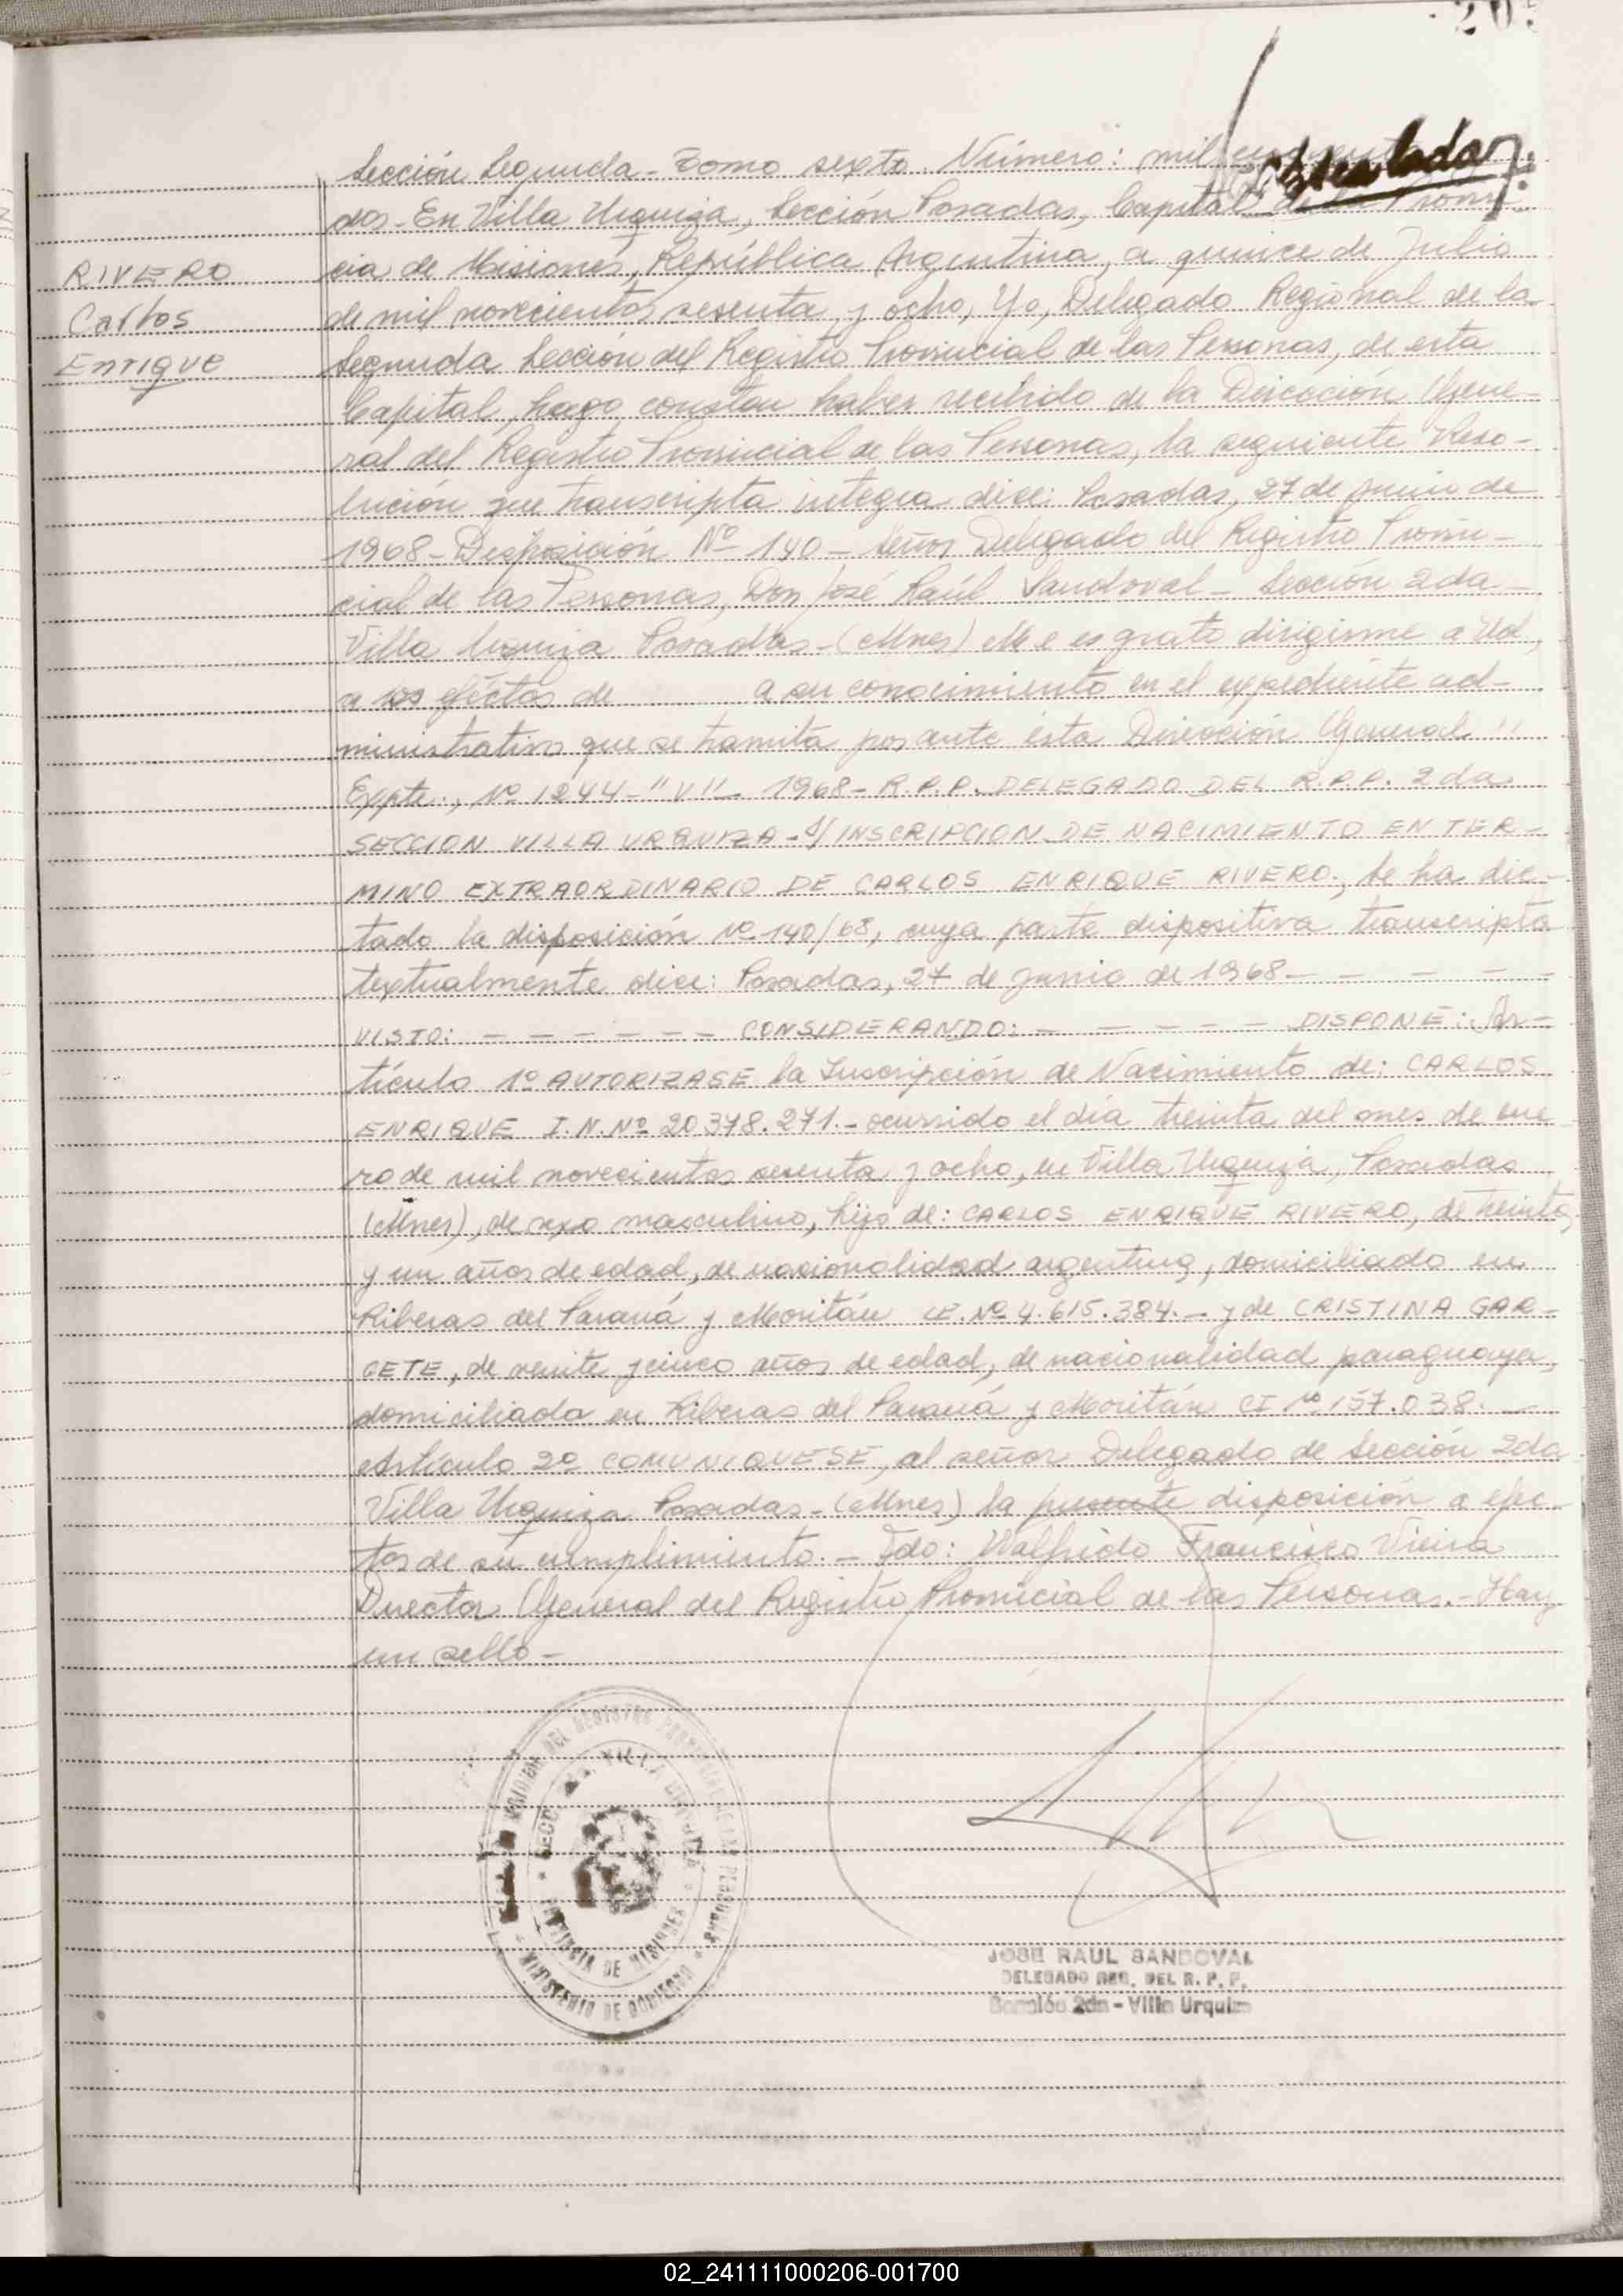 205
Sección Segunda - Tomo sexto. Número: mil
Escaladar
dos - En Villa Urquiza, Sección Posadas, Capital de la Provin
cia de Misiones, República Argentina, a quince de Julio
de mil novecientos sesenta y ocho, Yo, Delegado Regional de la
Segunda Sección del Registro Provincial de las Personas, de esta
Capital, hago constar haber recibido de la Dirección Gene-
ral del Registro Provincial de las Personas, la siguiente Reso-
lución que transcripta integra dice: Posadas, 27 de junio de
1968 - Disposición Nº 140 - Señor Delegado del Registro Provin-
cial de las Personas, Don José Raúl Sandoval - Sección 2da -
Villa Urquiza Posadas - (Mnes) Me es grato dirigirme a Ud,
a los efectos de a su conocimiento en el expediente ad-
ministrativo que se tramita por ante ésta Dirección General "
Expte., Nº 1244 - "V" - 1968 - R.P.P. DELEGADO DEL R.P.P. 2da
SECCION VILLA URQUIZA - S/ INSCRIPCION DE NACIMIENTO EN TER-
MINO EXTRAORDINARIO DE CARLOS ENRIQUE RIVERO., Se ha dic-
tado la disposición Nº 140/68, cuya parte dispositiva transcripta
textualmente dice: Posadas, 27 de junio de 1968 - - - - -
VISTO: - - - - - - CONSIDERANDO: - - - - - DISPONE: Ar-
tículo 1º AUTORIZASE la Inscripción de Nacimiento de: CARLOS
ENRIQUE I.N.Nº 20378.271. - ocurrido el día treinta del mes de ene
ro de mil novecientos sesenta y ocho, en Villa Urquiza, Posadas
(Mnes), de sexo masculino, hijo de: CARLOS ENRIQUE RIVERO, de treinta
y un años de edad, de nacionalidad argentina, domiciliado en
Riberas del Paraná y Moritán LE. Nº 4.615.384. - y de CRISTINA GAR-
CETE, de veinte y cinco años de edad, de nacionalidad paraguaya,
domiciliada en Riberas del Paraná y Moritán CI Nº 157.038. -
Artículo 2º COMUNIQUESE, al señor Delegado de Sección 2da
Villa Urquiza Posadas - (Mnes) la presente disposición a efec-
tos de su cumplimiento. - Fdo: Walfrido Francisco Vieira
Director General del Registro Provincial de las Personas. - Hay
un sello -
RIVERO
Carlos
Enrique
DEL REGISTRO PROVINCIAL DE LAS PERSONAS
MINISTERIO DE GOBIERNO
SECC. 2da. VILLA URQUIZA
PROVINCIA DE MISIONES
JOSE RAUL SANDOVAL
DELEGADO REG. DEL R. P. P.
Sección 2da - Villa Urquiza
02_241111000206-001700